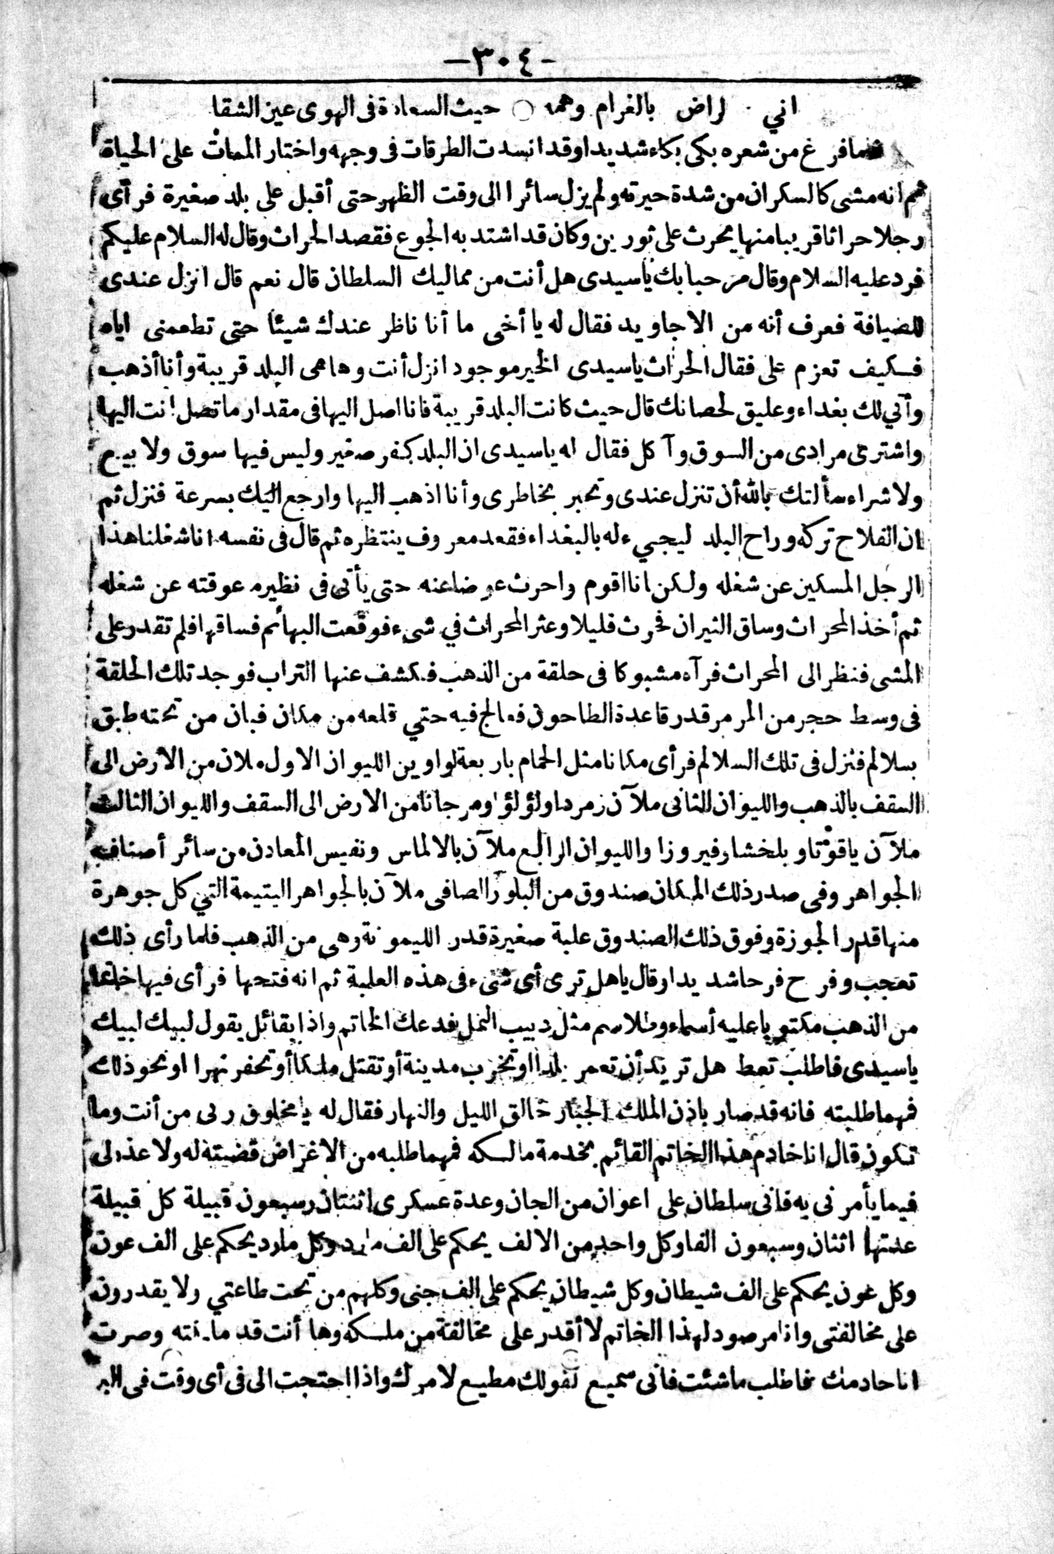 -٣٠٤-
اني لراض بالغرام وهمه ○ حيث السعادة فى الهوى عين الشقا
فلما فرغ من شعره بكى بكاء شديدا وقد انسدت الطرقات فى وجهه واختار الممات على الحياة
ثم انه مشى كالسكران من شدة حيرته ولم يزل سائرا الى وقت الظهر حتى أقبل على بلد صغيرة فرآى
رجلا حراثا قريبا منها يحرث على ثورين وكان قد اشتد به الجوع فقصد الحراث وقال له السلام عليكم
فرد عليه السلام وقال مرحبا بك ياسيدى هل أنت من مماليك السلطان قال نعم قال انزل عندى
للضيافة فعرف أنه من الاجاويد فقال له يا أخى ما أنا ناظر عندك شيئا حتى تطعمنى اياه
فكيف تعزم على فقال الحراث ياسيدى الخير موجود انزل أنت وهاهى البلد قريبة وأنا أذهب
وآتي لك بغداء وعليق لحصانك قال حيث كانت البلد قريبة فانا اصل اليها فى مقدار ما تصل انت اليها
واشترى مرادى من السوق وآكل فقال له ياسيدى ان البلد كفر صغير وليس فيها سوق ولا بيع
ولا شراء سألتك بالله أن تنزل عندى وتجبر بخاطرى وأنا اذهب اليها وارجع اليك بسرعة فنزل ثم
ان الفلاح تركه وراح البلد ليجيء له بالغداء فقعد معروف ينتظره ثم قال فى نفسه انا شغلنا هذا
الرجل المسكين عن شغله ولكن انا اقوم واحرث عوضا عنه حتى يأتى فى نظير ما عوقته عن شغله
ثم أخذ المحراث وساق الثيران فحرث قليلا وعثر المحراث في شىء فوقعت البهائم فساقها فلم تقدر على
المشى فنظر الى المحراث فرآه مشبوكا فى حلقة من الذهب فكشف عنها التراب فوجد تلك الحلقة
فى وسط حجر من المرمر قدر قاعدة الطاحون فعالج فيه حتي قلعه من مكان فبان من تحته طبق
بسلالم فنزل فى تلك السلالم فرأى مكانا مثل الحمام باربعة لواوين الليوان الاول ملآن من الارض الى
السقف بالذهب والليوان الثانى ملآن زمردا ولؤلؤا ومرجانا من الارض الى السقف والليوان الثالث
ملآن ياقوتا وبلخشا وفيروزا والليوان الرابع ملآن بالالماس ونفيس المعادن من سائر أصناف
الجواهر وفى صدر ذلك المكان صندوق من البلور الصافى ملآن بالجواهر اليتيمة التي كل جوهرة
منها قدر الجوزة وفوق ذلك الصندوق علبة صغيرة قدر الليمونة وهى من الذهب فلما رأى ذلك
تعجب وفرح فرحا شديدا وقال ياهل ترى أى شىء فى هذه العلبة ثم انه فتحها فرأى فيها خاتما
من الذهب مكتوبا عليه أسماء وطلاسم مثل دبيب النمل فدعك الخاتم واذا بقائل يقول لبيك لبيك
ياسيدى فاطلب تعط هل تريد أن تعمر بلدا او تخرب مدينة أو تقتل ملكا أو تحفر نهرا او نحو ذلك
فمهما طلبته فانه قد صار باذن الملك الجبار خالق الليل والنهار فقال له يا مخلوق ربى من أنت وما
تكون قال انا خادم هذا الخاتم القائم بخدمة مالكه فمهما طلبه من الاغراض قضيته له ولا عذر لى
فيما يأمرنى به فانى سلطان على اعوان من الجان وعدة عسكرى اثنتان وسبعون قبيلة كل قبيلة
عدتها اثنان وسبعون الفا وكل واحد من الالف يحكم على الف مارد وكل مارد يحكم على الف عون
وكل عون يحكم على الف شيطان وكل شيطان يحكم على الف جنى وكلهم من تحت طاعتي ولا يقدرون
على مخالفتى وانا مرصود لهذا الخاتم لا أقدر على مخالفة من ملكه وها أنت قد ملكته وصرت
انا خادمك فاطلب ما شئت فانى سميع لقولك مطيع لامرك واذا احتجت الى فى أى وقت فى البر